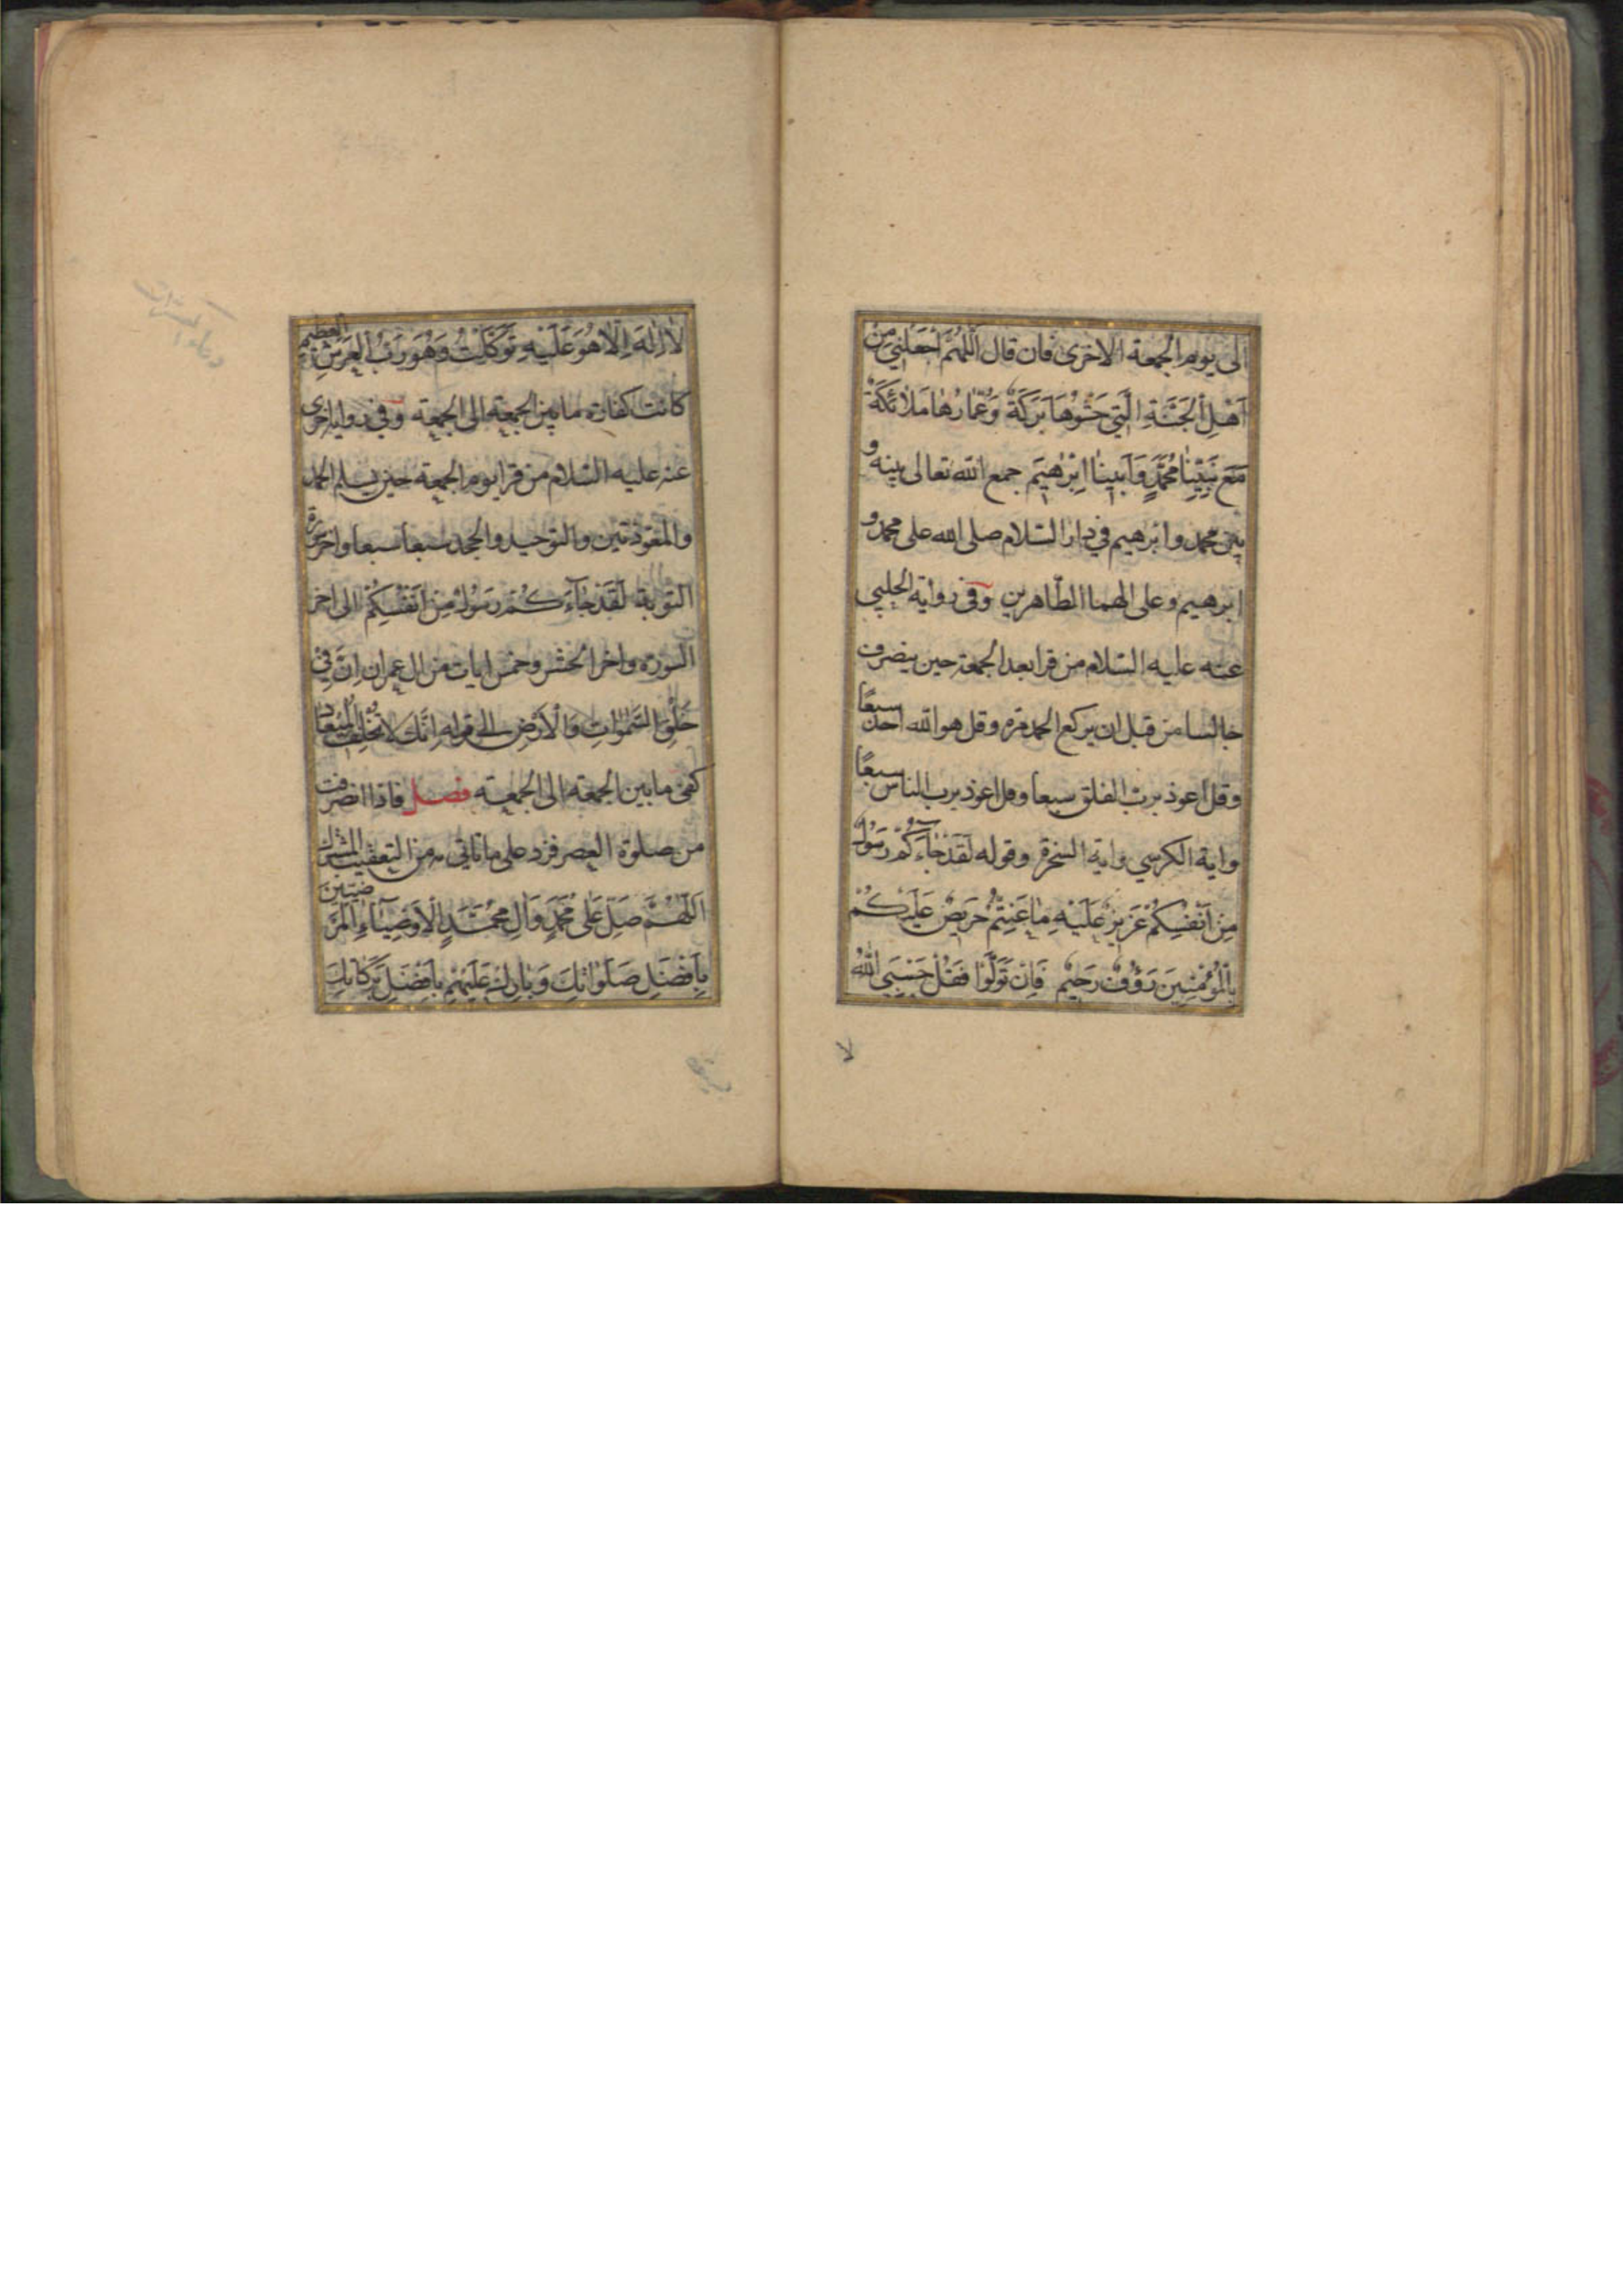 الى يوم الجمعة الاخرى فان قال اَللّٰهُمَّ اجْعَلْنِي مِنْ
اَهْلِ الْجَنَّةِ الَّتِي حَشْوُهَا بَرَكَةٌ وَعُمَّارُهَا مَلَائِكَةٌ
مَعَ نَبِيِّنَا مُحَمَّدٍ وَاَبِينَا اِبْرٰهِيمَ جمع الله تعالى بينه و
بين محمد وابرهيم في دار السّلام صلى الله على محمد و
ابرهيم وعلى الهما الطّاهرين وفي رواية الحلبي
عنه عليه السّلام من قرا بعد الجمعة حين ينصرف
جالسا من قبل ان يركع الحمد مرة وقل هو الله احد سبعًا
وقل اعوذ بربّ الفلق سبعا وقل اعوذ برب الناس سبعًا
واية الكرسي واية السخرة وقوله لَقَدْ جَآءَكُمْ رَسُولٌ
مِنْ اَنْفُسِكُمْ عَزِيزٌ عَلَيْهِ مَا عَنِتُّمْ حَرِيصٌ عَلَيْكُمْ
بِالْمُؤْمِنِينَ رَؤُفٌ رَحِيمٌ فَاِنْ تَوَلَّوْا فَقُلْ حَسْبِيَ اللّٰهُ
لا
لَا اِلٰهَ اِلَّا هُوَ عَلَيْهِ تَوَكَّلْتُ وَهُوَ رَبُّ الْعَرْشِ العظيم
كانت كفارة ما بين الجمعة الى الجمعة وفي رواية اخرى
عنه عليه السّلام من قرا يوم الجمعة حين يسلم الحمد
والمعوّذتين والتوحيد والجحد سبعا سبعا واخر سورة
التوبة لَقَدْ جَآءَكُمْ رَسُولٌ مِنْ اَنْفُسِكُمْ الى اخر
السورة واخر الحشر وخمس ايات من ال عمران اِنَّ فِي
خَلْقِ السَّمٰوَاتِ وَالْاَرْضِ الى قوله اِنَّكَ لَا تُخْلِفُ الْمِيعَادَ
كفى ما بين الجمعة الى الجمعة فصل فاذا انصرفت
من صلوة العصر فزد على ما ياتي من التعقيب المشترك
اَللّٰهُمَّ صَلِّ عَلٰى مُحَمَّدٍ وَاٰلِ مُحَمَّدٍ الْاَوْصِيَآءِ الْمَرْضِيِّينَ
بِاَفْضَلِ صَلَوَاتِكَ وَبَارِكْ عَلَيْهِمْ بِاَفْضَلِ بَرَكَاتِكَ